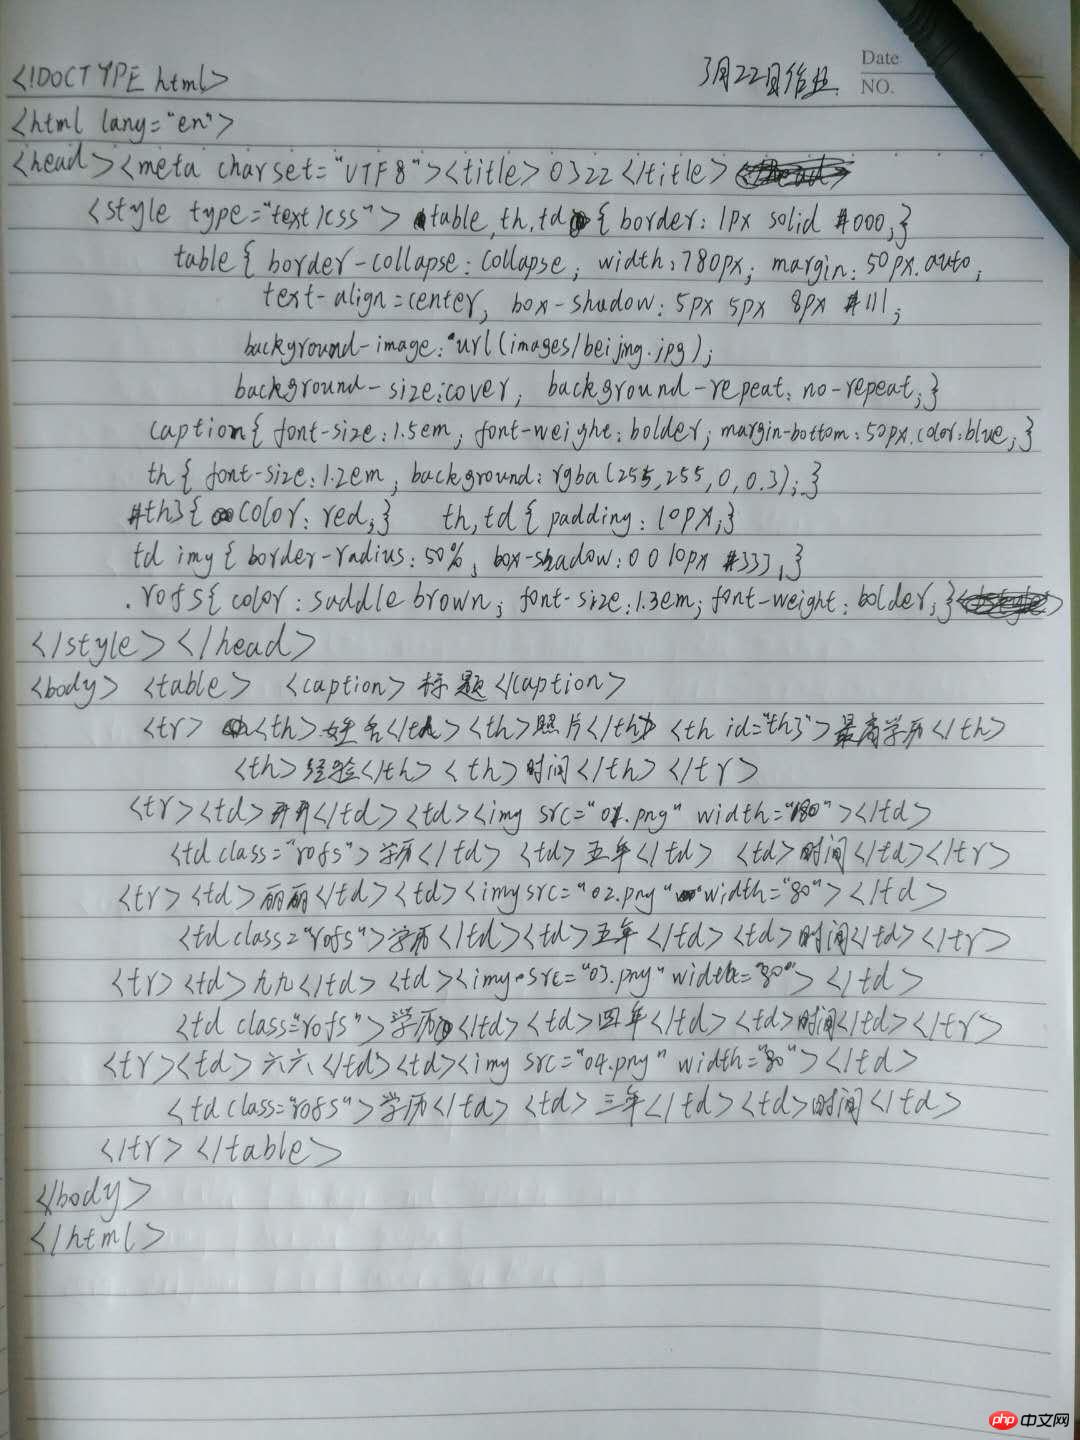 3月22日作业
Date
NO.
<!DOCTYPE html>
<html lang="en">
<head><meta charset="UTF8"><title>0322</title>
<style type="text/css"> table, th, td { border: 1px solid #000;}
table{ border-collapse: collapse; width: 780px; margin: 50px. auto;
text-align=center; box-shadow: 5px 5px 8px #111;
background-image: url(images/beijing.jpg);
background-size:cover; background-repeat: no-repeat;}
caption{ font-size: 1.5em; font-weight: bolder; margin-bottom: 50px. color:blue;}
th{ font-size: 1.2em; background: rgba(255,255,0,0.3);}
#th3{ color: red;} th,td{ padding: 10px;}
td img{ border-radius: 50%; box-shadow: 0 0 10px #333;}
.rofs{ color: saddle brown; font-size: 1.3em; font-weight: bolder;}
</style></head>
<body> <table> <caption>标题</caption>
<tr> <th>姓名</th><th>照片</th> <th id="th3">最高学历</th>
<th>经验</th> <th>时间</th></tr>
<tr><td></td><td><img src="01.png" width="80"></td>
<td class="rofs">学历</td> <td>五年</td> <td>时间</td></tr>
<tr><td>丽丽</td><td><img src="02.png" width="80"></td>
<td class="rofs">学历</td><td>五年</td><td>时间</td></tr>
<tr><td>九九</td><td><img src="03.png" width="80"></td>
<td class="rofs">学历</td><td>四年</td><td>时间</td></tr>
<tr><td>六六</td><td><img src="04.png" width="80"></td>
<td class="rofs">学历</td> <td>三年</td><td>时间</td>
</tr></table>
</body>
</html>
php中文网